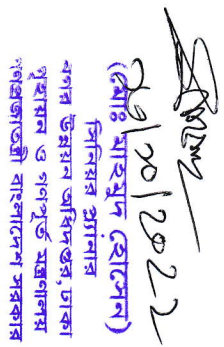 (মোঃ মাহমুদ হোসেন)
সিনিয়র প্ল্যানার
নগর উন্নয়ন অধিদপ্তর, ঢাকা
গৃহায়ন ও গণপূর্ত মন্ত্রণালয়
গণপ্রজাতন্ত্রী বাংলাদেশ সরকার